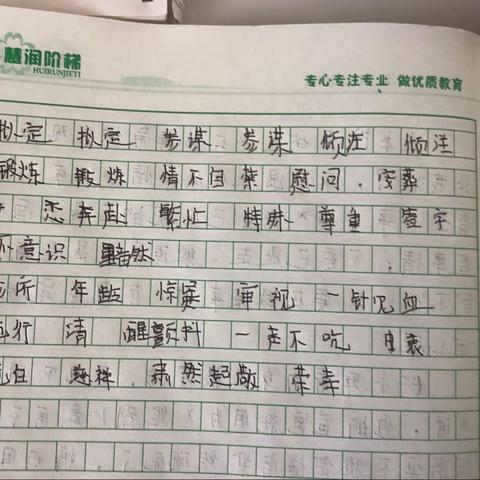 慧润阶梯
HUIRUNJIETI
专心专注专业 做优质教育
拟定 拟定 参谋 参谋 倾注 倾注
锻炼 锻炼 情不自禁 慰问 . 安葬
恋 奔赴 繁忙 特殊 尊重 室宇
意识 黯然
诊所 年龄 惊异 审视 一针见血
行 清醒 颤抖 一声不吭 目衷
白 慈祥 . 肃然起敬 荣幸